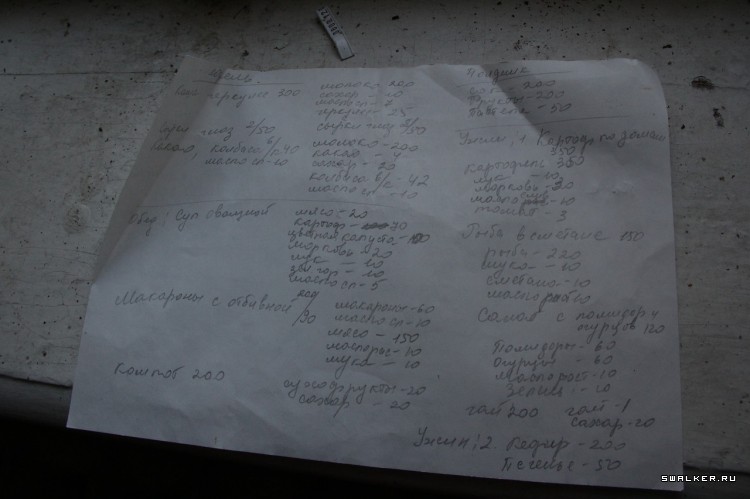 Суп геркулес 300
молоко 200
сахар - 10
масло сл -
геркулес - 25
2/50
сырки глаз 2/50
Какао, колбаса в/с 40
масло сл - 10
молоко - 200
какао - 4
сахар - 20
колбаса в/с - 42
масло сл - 10
Обед: Суп овощной
мясо - 20
картоф - 70
цветная капуста -
морковь - 20
лук - 10
зел гор - 10
масло сл - 5
Макароны с отбивной
макароны - 60
масло сл - 10
мясо - 150
масло рас - 10
мука - 10
Компот 200
сухофрукты - 20
сахар - 20
Полдник
200
Фрукты - 200
Печенье - 50
Ужин: 1. Картоф. по
350
картофель - 300
лук - 10
морковь - 20
масло - 10
томат - 3
Рыба в сметане 150
рыба - 220
мука - 10
сметана - 10
масло раст 10
Салат с помидор и
огурцов 120
Помидоры - 60
Огурцы - 60
масло раст - 10
зелень - 10
чай 200
чай - 1
сахар - 20
Ужин: 2. Кефир - 200
Печенье - 50
SWALKER.RU